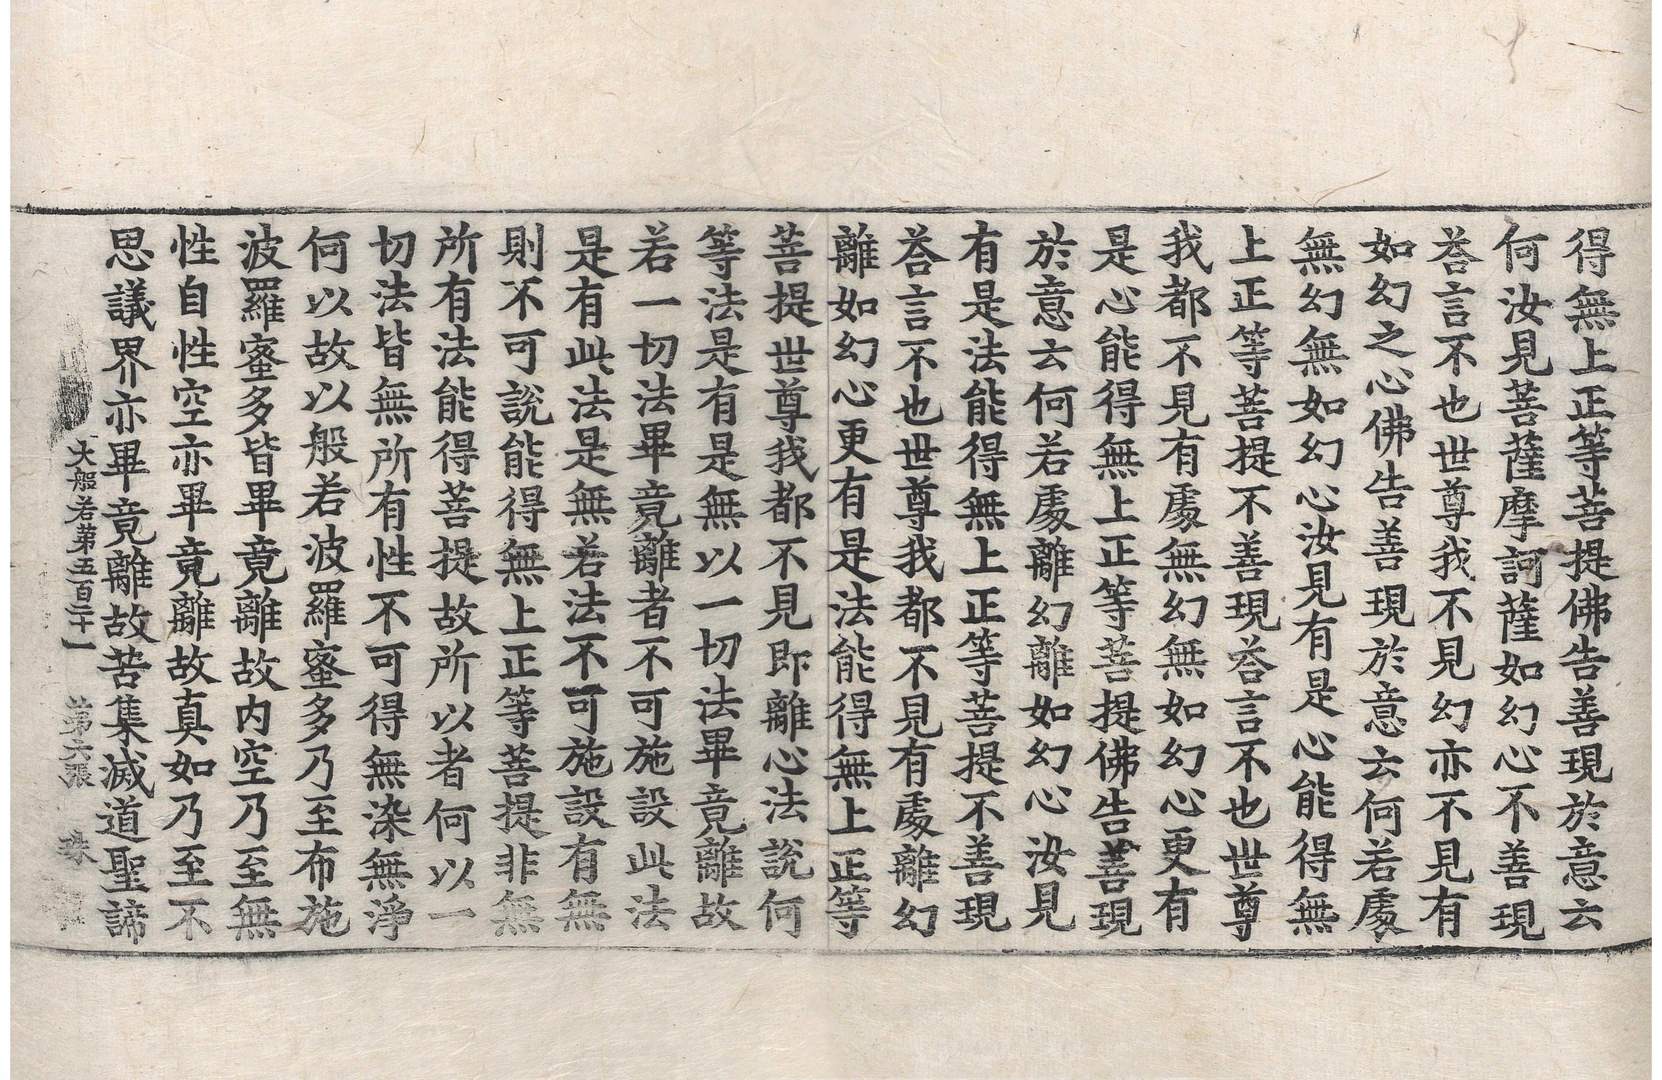 得無上正等菩提佛告善現於意云
何汝見菩薩摩訶薩如幻心不善現
荅言不也世尊我不見幻亦不見有
如幻之心佛告善現於意云何若處
無幻無如幻心汝見有是心能得無
上正等菩提不善現荅言不也世尊
我都不見有處無幻無如幻心更有
是心能得無上正等菩提佛告善現
於意云何若處離幻離如幻心汝見
有是法能得無上正等菩提不善現
荅言不也世尊我都不見有處離幻
離如幻心更有是法能得無上正等
菩提世尊我都不見即離心法說何
等法是有是無以一切法畢竟離故
若一切法畢竟離者不可施設此法
是有此法是無若法不可施設有無
則不可說能得無上正等菩提非無
所有法能得菩提故所以者何以一
切法皆無所有性不可得無染無淨
何以故以般若波羅蜜多乃至布施
波羅蜜多皆畢竟離故內空乃至無
性自性空亦畢竟離故真如乃至不
思議界亦畢竟離故苦集滅道聖諦
大般若第五百二十一 第六張 珠